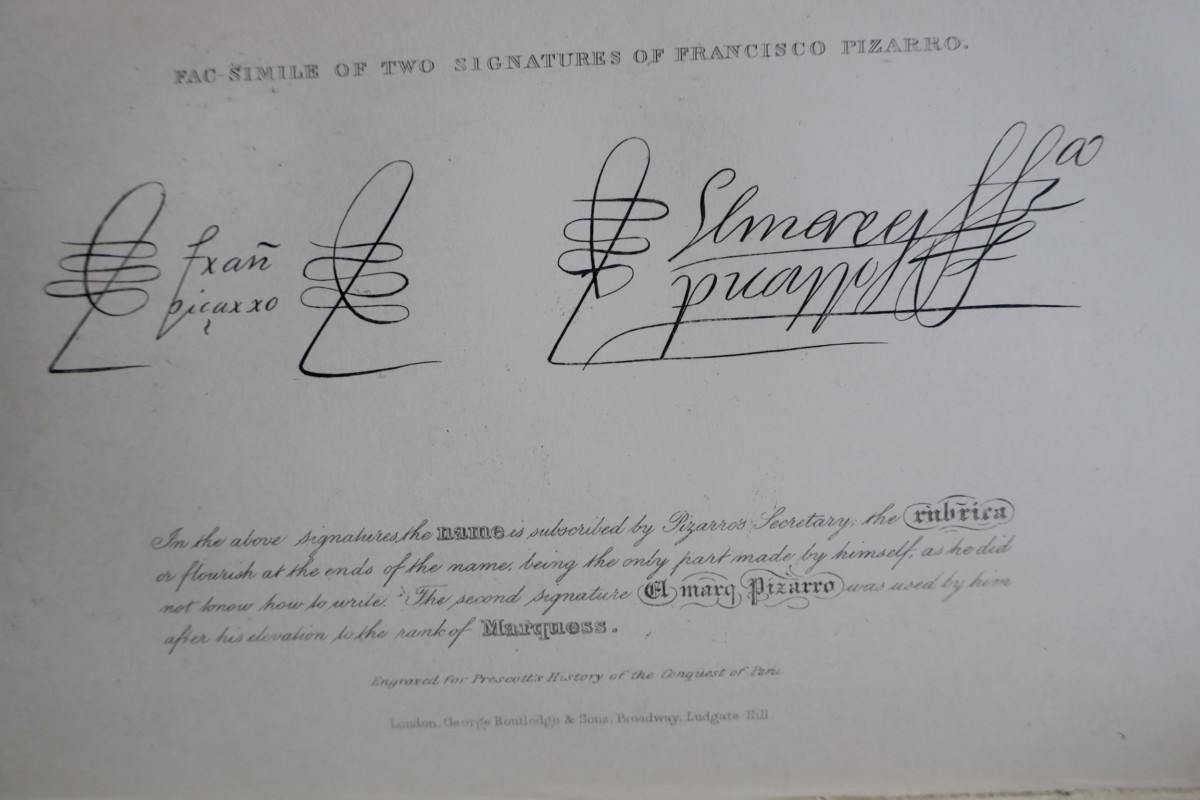 FAC-SIMILE OF TWO SIGNATURES OF FRANCISCO PIZARRO.
frañ
piçarro
El marq
piçarro
In the above signatures, the name is subscribed by Pizarro's Secretary; the rubrica
or flourish at the ends of the name, being the only part made by himself, as he did
not know how to write. The second signature El marq Pizarro was used by him
after his elevation to the rank of Marquess.
Engraved for Prescott's History of the Conquest of Peru.
London, George Routledge & Sons, Broadway, Ludgate Hill.